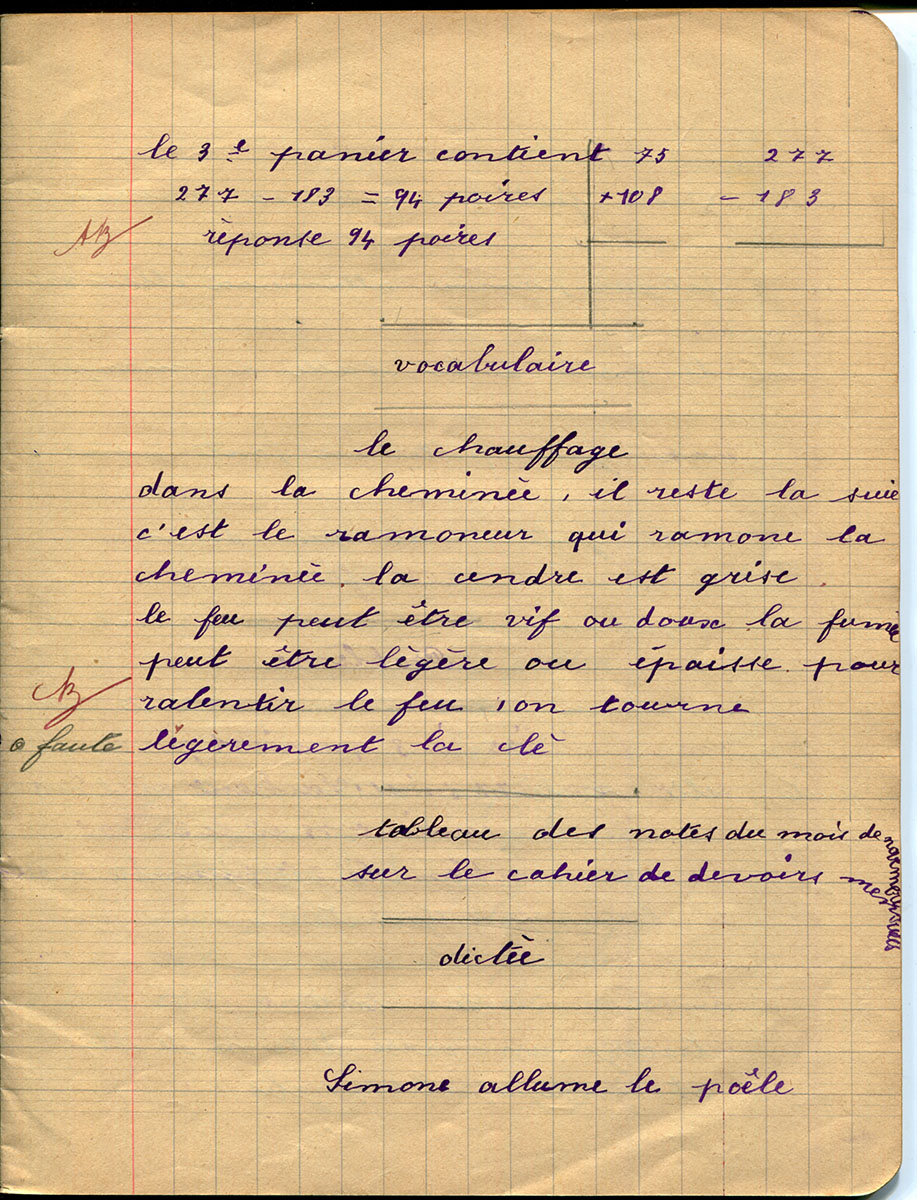 le 3e panier contient 75 277
277 - 183 = 94 poires +108 - 183
réponse 94 poires
vocabulaire
le chauffage
dans la cheminée, il reste la suie
c'est le ramoneur qui ramone la
cheminée. la cendre est grise.
le feu peut être vif ou doux la fumée
peut être légère ou épaisse. pour
ralentir le feu, on tourne
0 faute légèrement la clé
tableau des notes du mois de
sur le cahier de devoirs
dictée
Simone allume le poêle